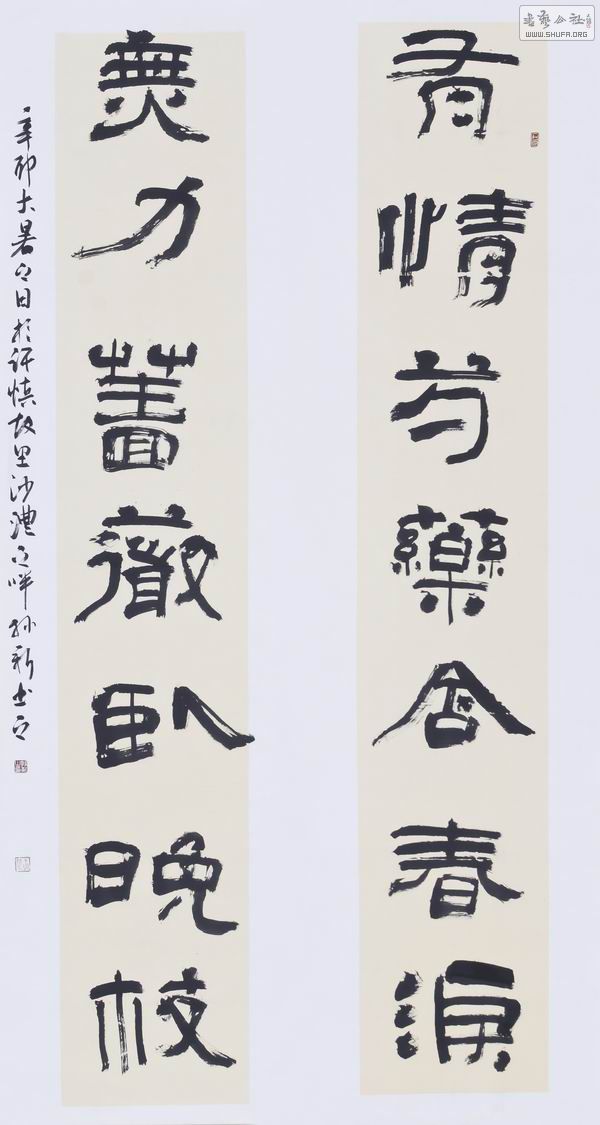 书艺公社
WWW.SHUFA.ORG
有情芍藥含春淚
無力薔薇臥晚枝
辛卯大暑之日於许慎故里沙澧之畔孙新书之